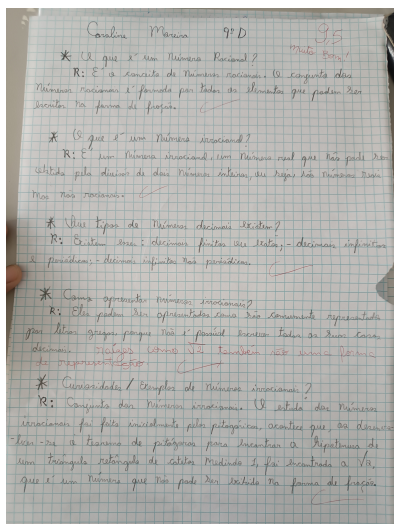 Caroline Moreira 9º D 95
Muito Bom!
* O que é um Número Racional?
R: É o conceito de Números racionais. O conjunto dos
Números racionais é formado por todos os elementos que podem ser
escritos na forma de fração.
* O que é um número irracional?
R: É um Número irracional, um Número real que não pode ser
obtido pela divisão de dois Números inteiros, ou seja são números reais
mas não racionais.
* Que tipos de Números decimais existem?
R: Existem três: decimais finitos ou exatos; - decimais infinitos
e periódicos; - decimais infinitos não periódicos.
* Como apresentar números irracionais?
R: Eles podem ser apresentados como são comumente representados
por letras gregas porque não é possível escrever todas as suas casas
decimais. raízes como √2 também são uma forma
de representação
* Curiosidades / Exemplos de Números irracionais?
R: Conjunto dos Números irracionais. O estudo dos Números
irracionais foi feito inicialmente pelos pitagóricos, acontece que, ao
-se o teorema de pitágoras para encontrar a hipotenusa de
um triângulo retângulo de catetos medindo 1, foi encontrada a
que é um Número que não pode ser exibido na forma de fração.